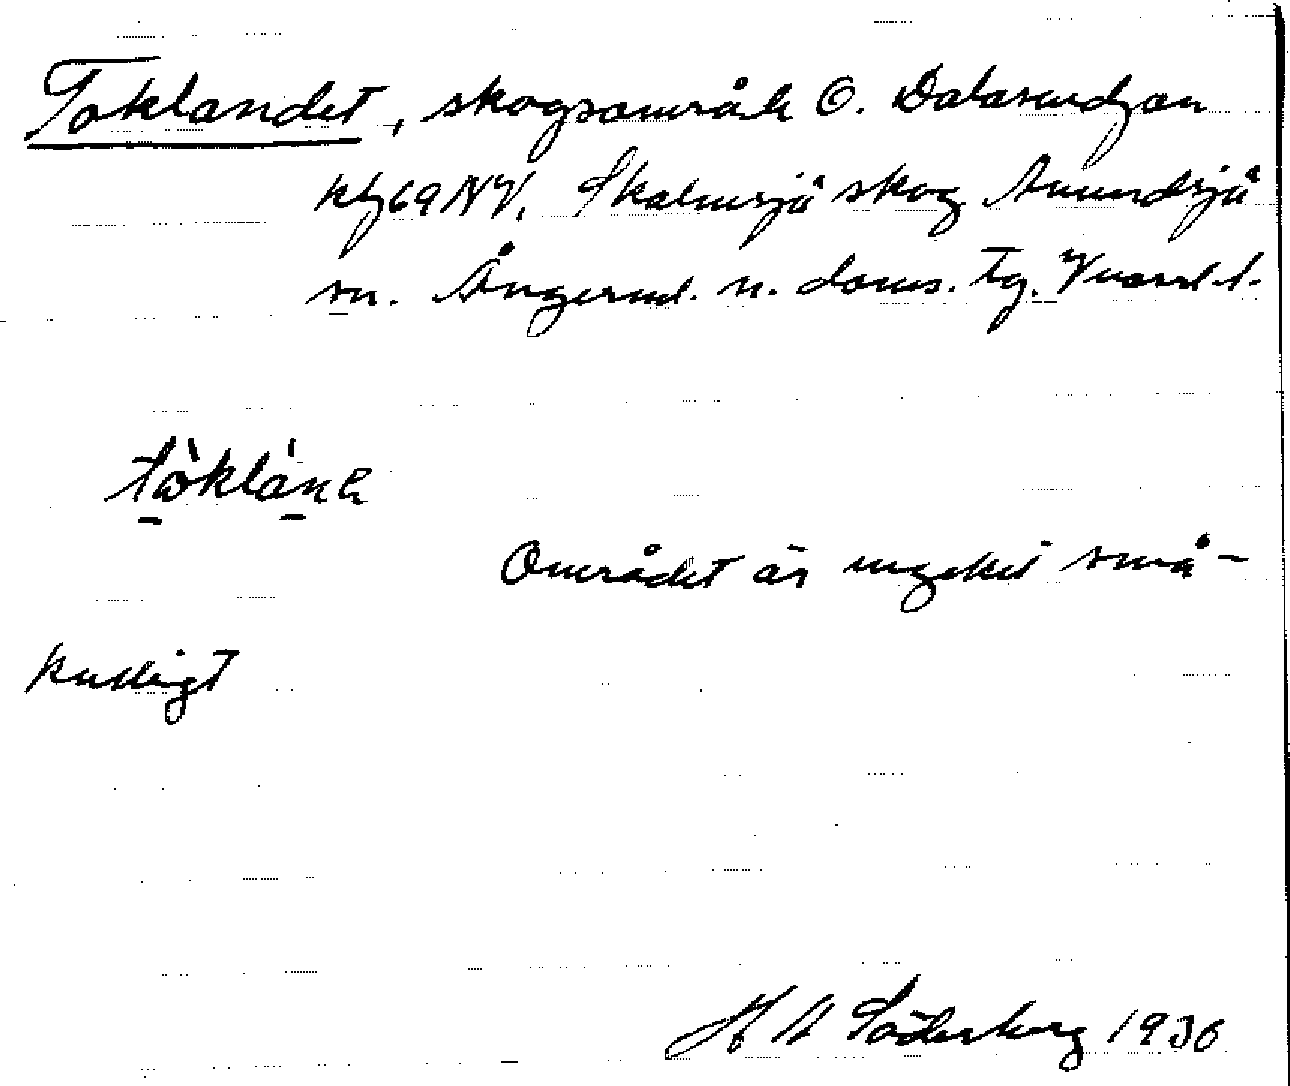 Toklandet, skogsområde Ö. Dalasundsjön
kbl 69 NV, Skalmsjö skog Anundsjö
sn. Ångerml. n. doms. tg. Vnorrl. l.
tòklánn
Området är mycket små-
kulligt
H N Söderberg 1936